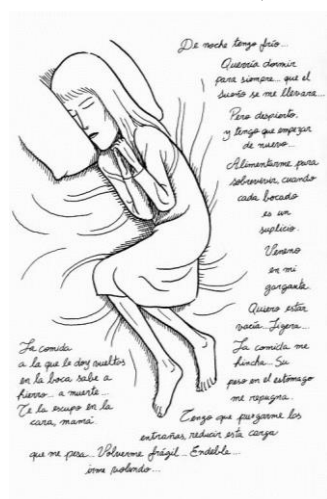 De noche tengo frío...
Querría dormir
para siempre... que el
sueño se me llevara...
Pero despierto.
y tengo que empezar
de nuevo...
Alimentarme para
sobrevivir, cuando
cada bocado
es un
suplicio.
Veneno
en mi
garganta.
Quiero estar
vacía. Ligera...
La comida me
hincha... Su
peso en el estómago
me repugna.
La comida
a la que le doy vueltas
en la boca sabe a
hierro... a muerte...
Te la escupo en la
cara, mamá.
Tengo que purgarme las
entrañas, reducir esta carga
que me pesa... Volverme frágil... Endeble...
irme volando...